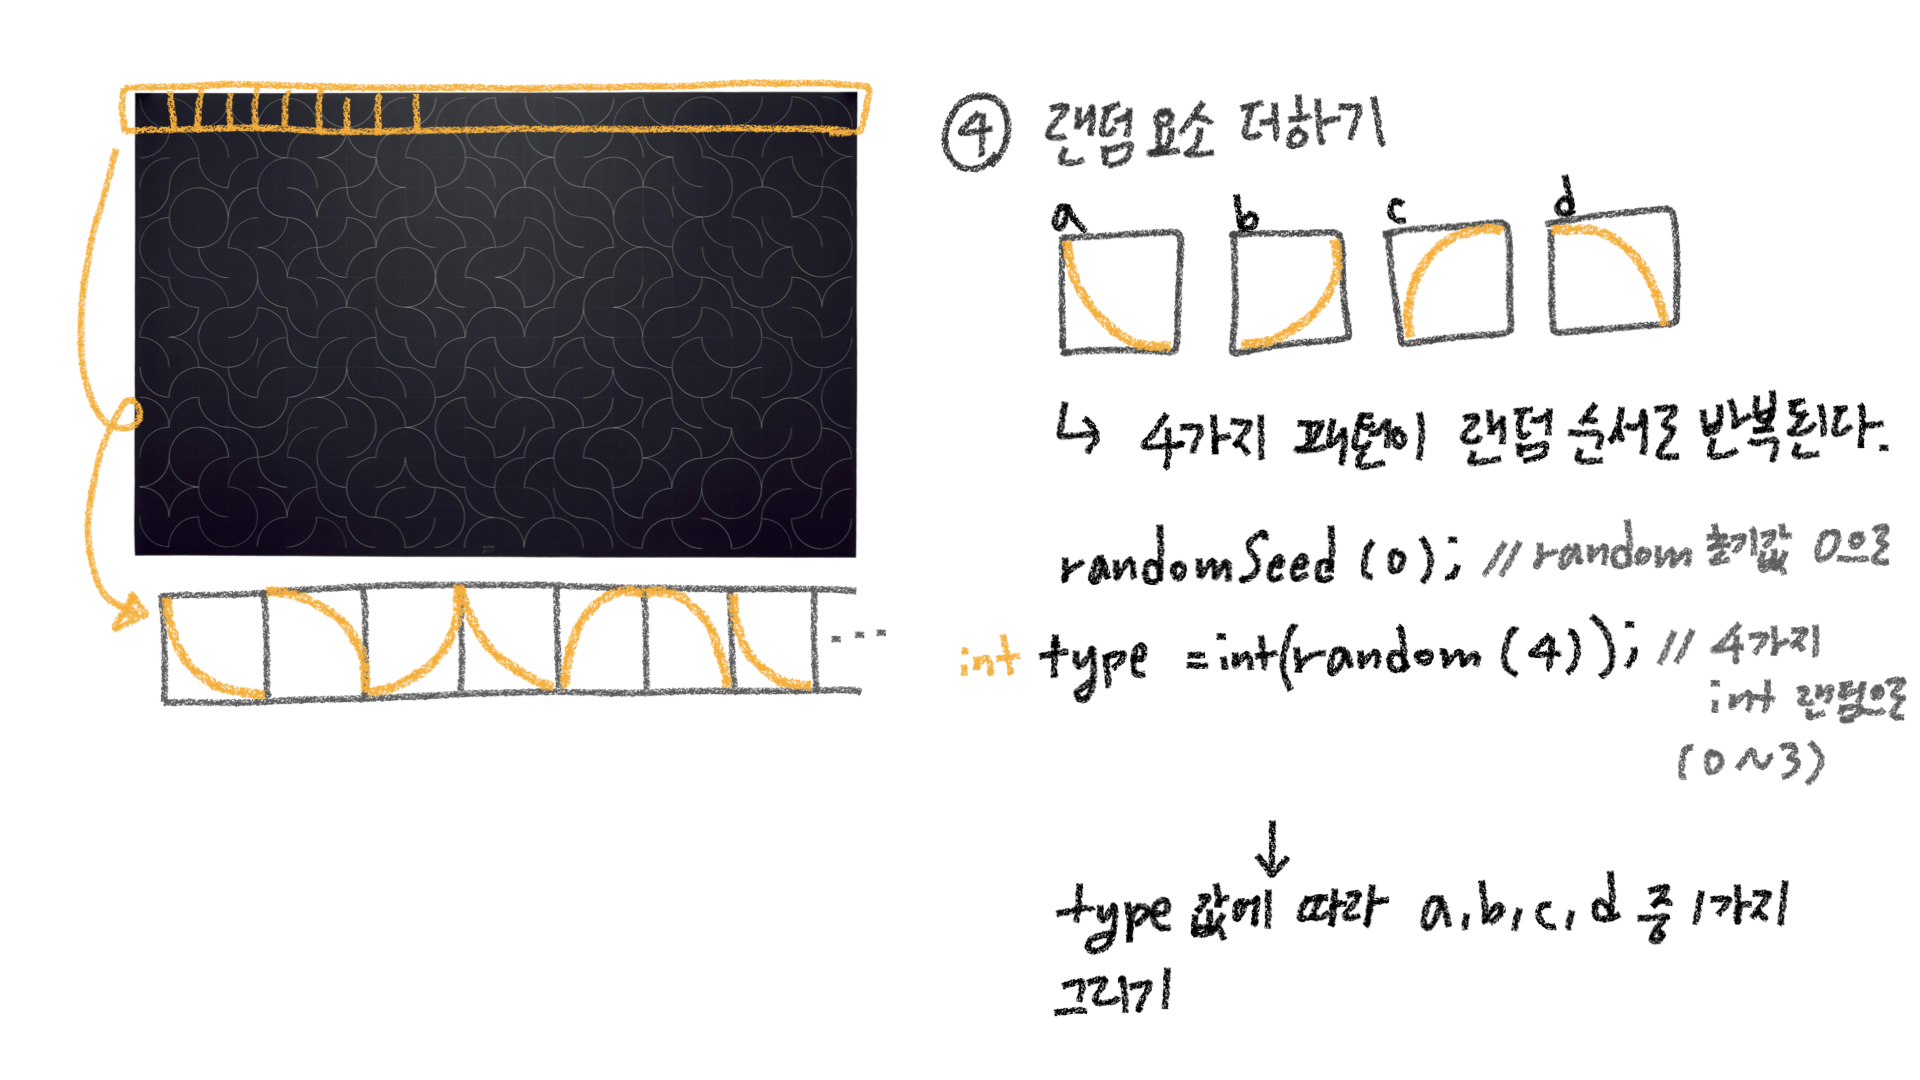 ④ 랜덤요소 더하기
a b c d
↳ 4가지 패턴이 랜덤 순서로 반복된다.
randomSeed(0); // random 초기값 0으로
int type = int(random(4)); // 4가지
int 랜덤으로
(0~3)
↓
type 값에 따라 a, b, c, d 중 1가지
그리기